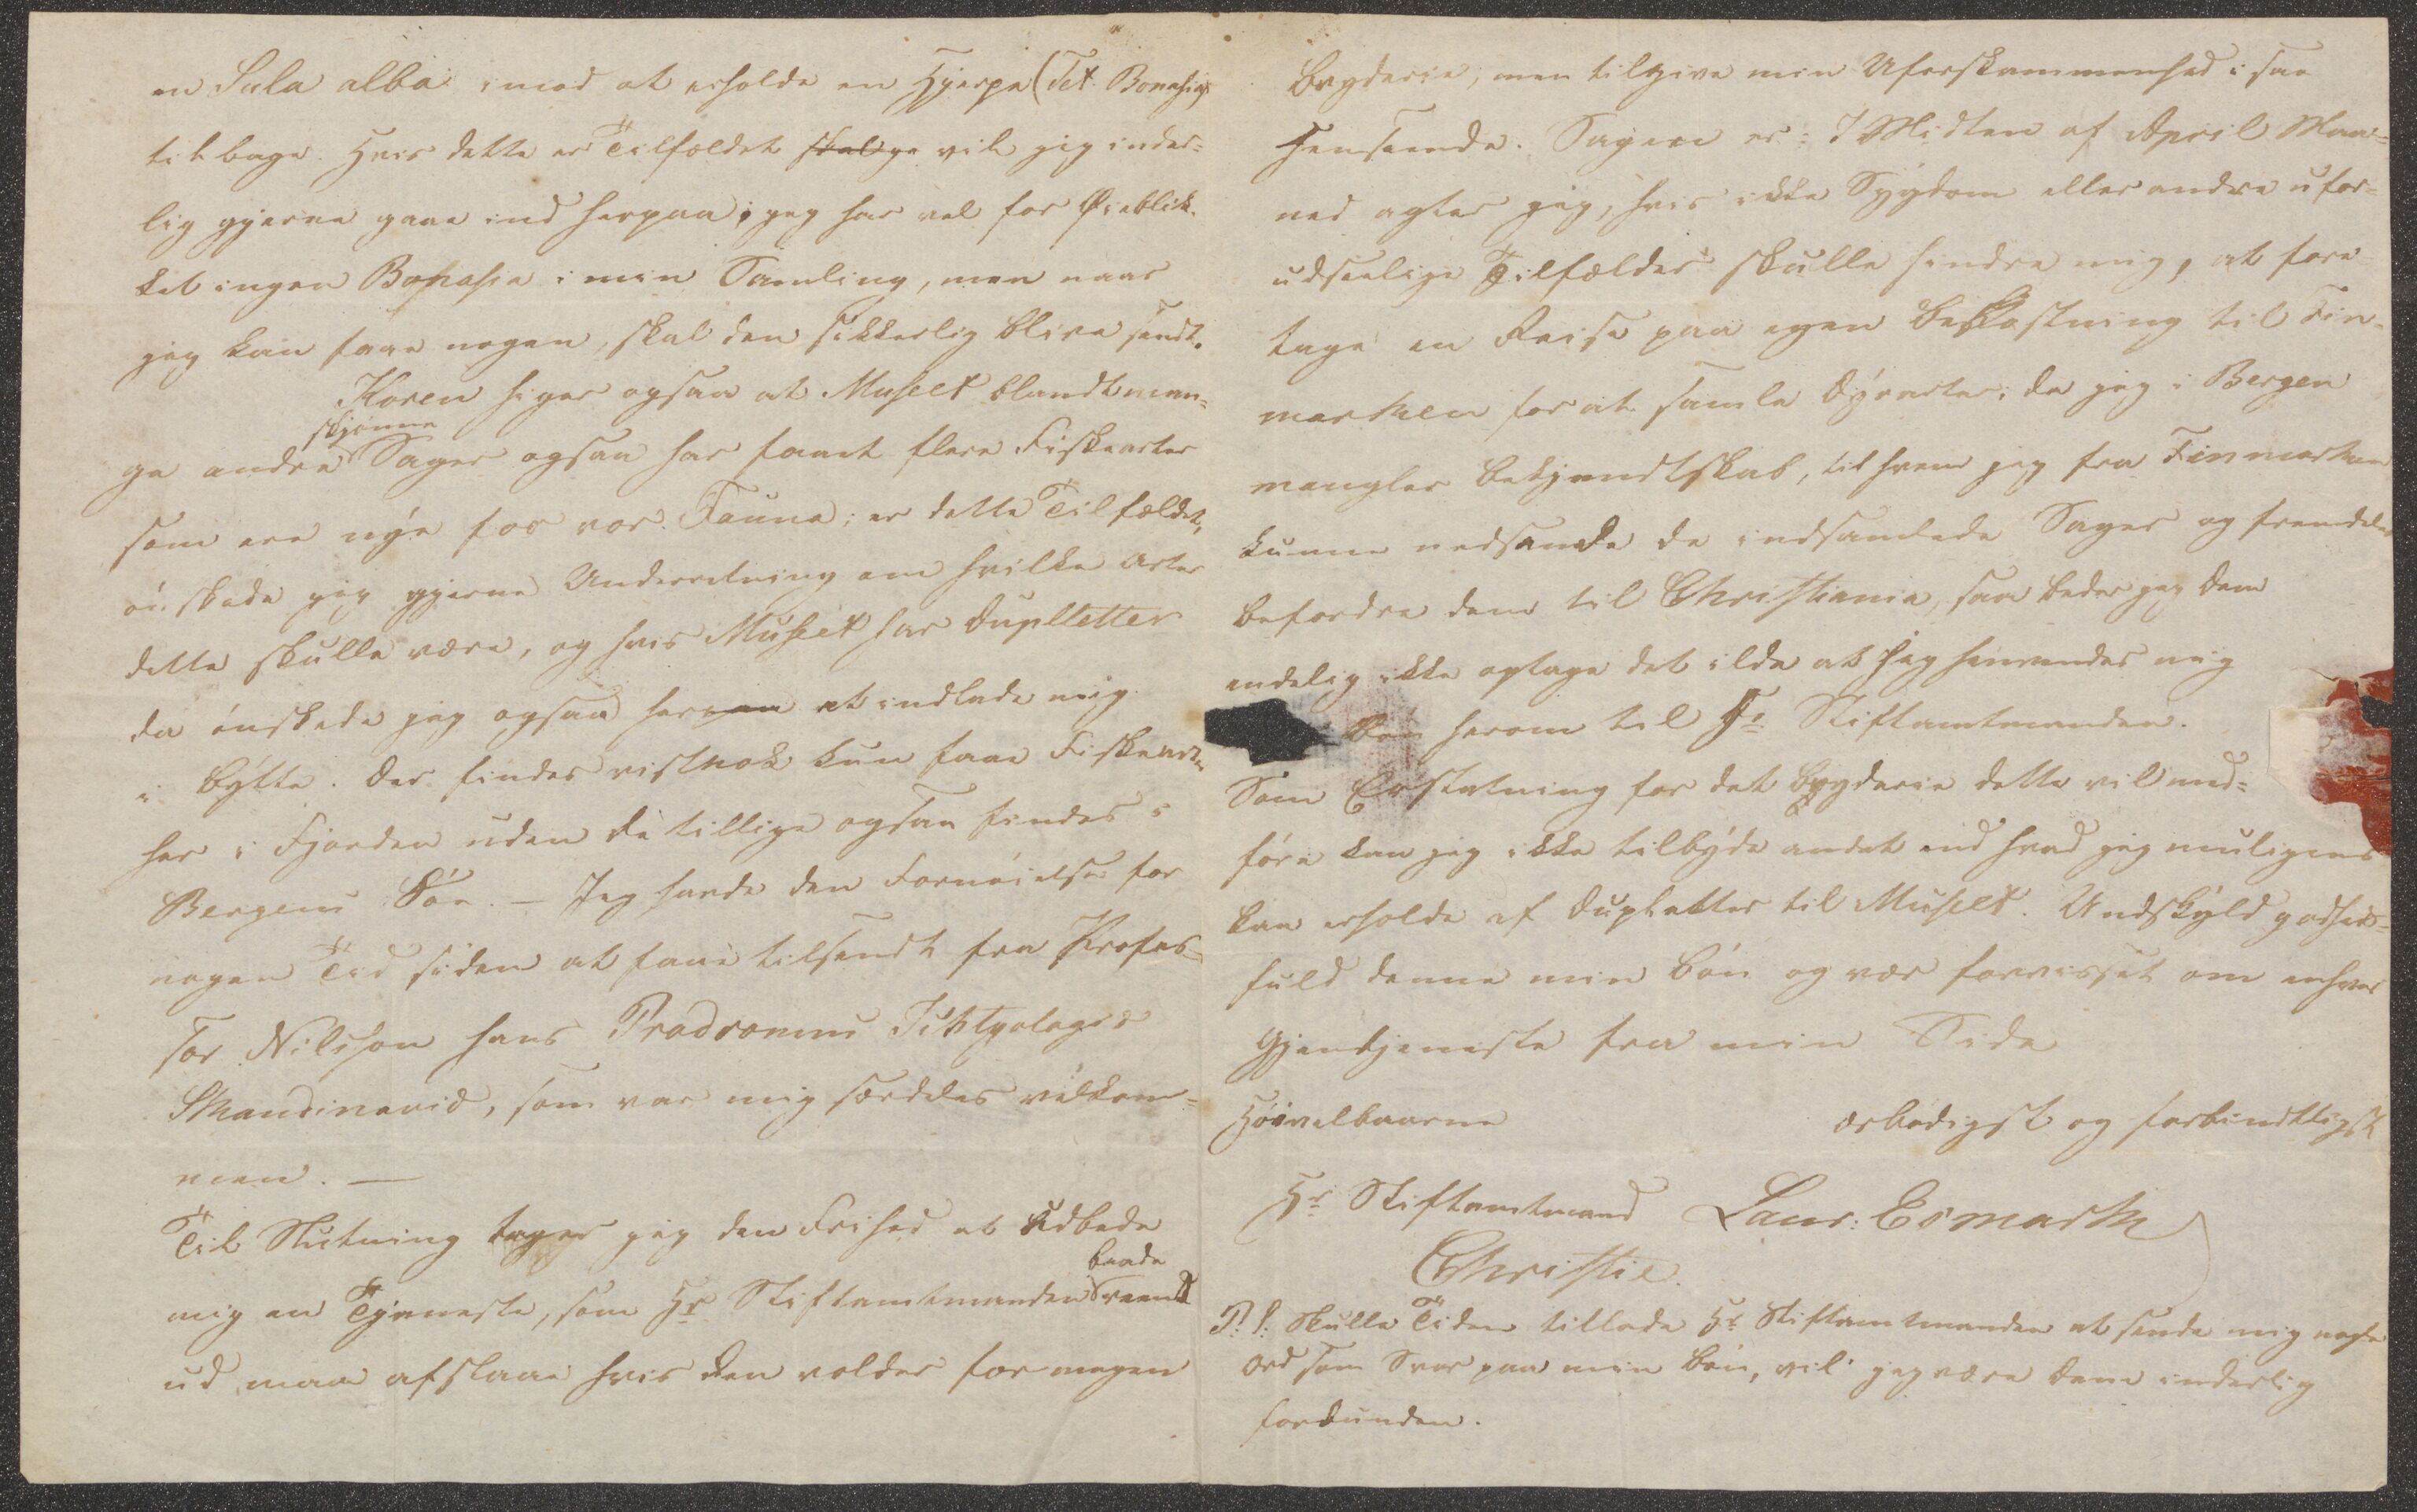 en Sula alba imod at erholde en Hjerpe (Tet. Bonasia)
tilbage. Hvis dette er Tilfældet skal jeg vil jeg inder=
lig gjerne gaae ind herpaa; jeg har vel for Øieblik=
ket ingen Bonasia i min Samling, men naar
jeg kan faae nogen, skal den sikkerlig blive sendt.
Koren siger ogsaa at Museet blandt man=
skjønne
ge andre Sager ogsaa har faaet flere Fiskearter
som ere nye for vor Fauna; er dette Tilfældet,
ønskede jeg gjerne Underretning om hvilke Arter
dette skulle være, og hvis Museet har Dupletter
da ønskede jeg ogsaa at indlade mig
i Bytte. Der findes vistnok kun faae Fiskearter
her i Fjorden uden de tillige ogsaa findes i
Bergens Søe. — Jeg havde den Fornøielse for
nogen Tid siden at faae tilsendt fra Profes=
sor Nilsson hans Prodromus Ichtyologiæ
Skandinaviæ, som var mig særdeles velkom=
men. —
Til Slutning tager jeg den Frihed at udbede
baade
mig en Tjeneste, som Hr Stiftamtmanden reent
ud maa afslaae hvis den volder for megen
Bryderie; men tilgive min Uforskammenhed i saa
Henseende. Sagen er: I Midten af April Maa=
ned agter jeg, hvis ikke Sygdom eller andre ufor=
udseelige Tilfælder skulle hindre mig, at fore=
tage en Reise paa egen Bekostning til Fin=
marken for at samle Dyrarter; da jeg i Bergen
mangler Bekjendtskab, til hvem jeg fra Finmarken
kunne nedsende de indsamlede Sager og fremdeles
befordre dem til Christiania, saa beder jeg Dem
endelig ikke optage det ilde at jeg henvender mig
Bøn herom til Hr Stiftamtmanden.
Som Erstatning for det Bryderie dette vil med=
føre kan jeg ikke tilbyde andet end hvad jeg muligens
kan erholde af Dupletter til Museet. Undskyld godhed=
fuld denne min Bøn og vær forvisset om enhver
Gjentjeneste fra min Side
Høivelbaarne ærbødigst og forbindtligst
Hr Stiftamtmand Laur: Esmark
Christie.
P. S. Skulle Tiden tillade Hr Stiftamtmanden at sende mig nogle
Ord som Svar paa min Bøn, vil jeg være Dem inderlig
forbunden.